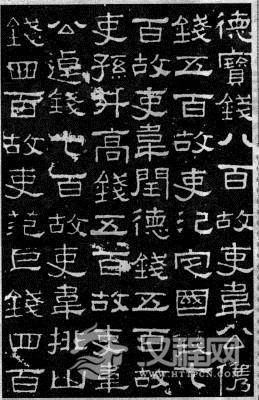 德寶錢八百故吏韋公儁
錢五百故吏氾定國錢七
百故吏韋閏德錢五百故
吏孫升高錢五百故吏韋
公逴錢七百故吏韋排山
錢四百故吏范巨錢四百